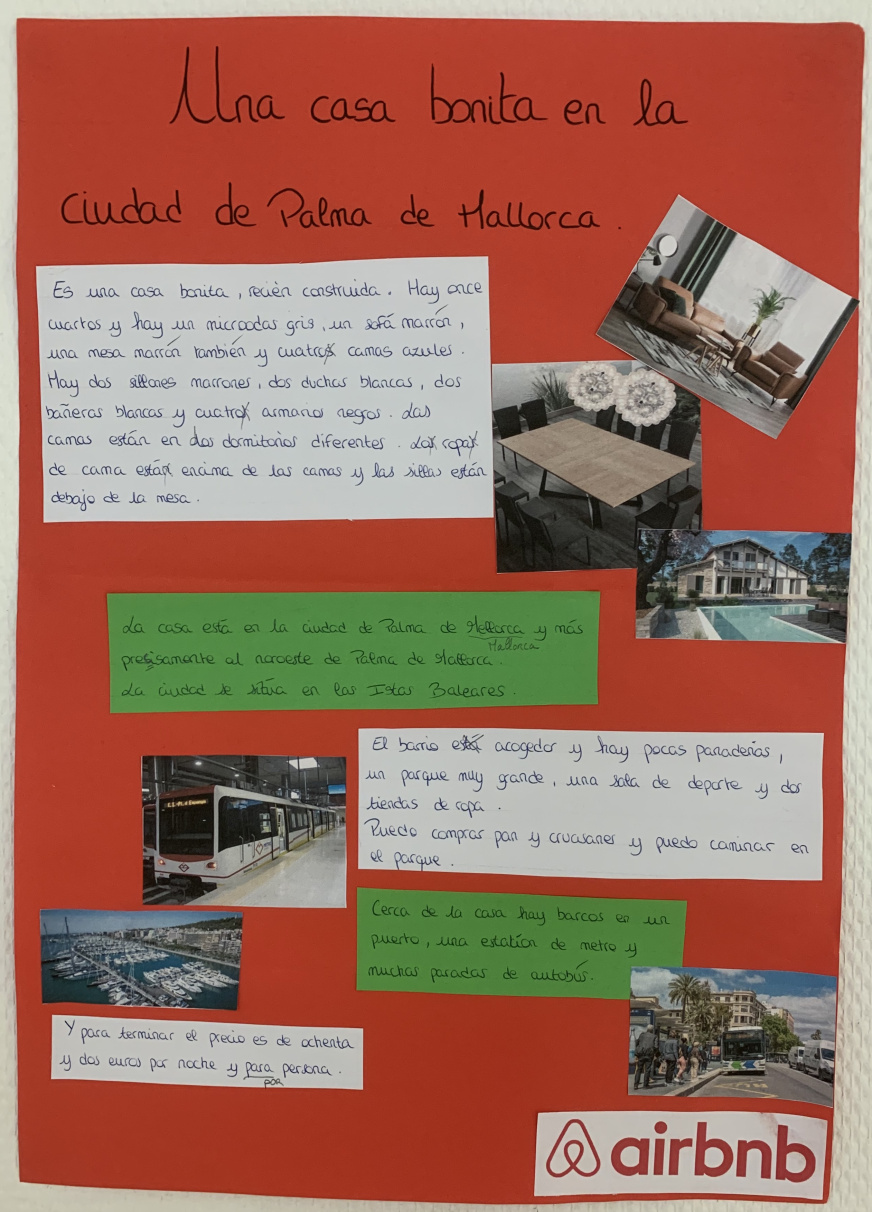 Una casa bonita en la
ciudad de Palma de Mallorca.
Es una casa bonita, recién construida. Hay once
cuartos y hay un microodas gris, un sofá marrón,
una mesa marrón también y cuatro camas azules.
Hay dos sillones marrones, dos duchas blancas, dos
bañeras blancas y cuatro armarios negros. Las
camas están en dos dormitorios diferentes. La ropa
de cama está encima de las camas y las sillas están
debajo de la mesa.
La casa está en la ciudad de Palma de Mellorca y más
Mallorca
presisamente al noroeste de Palma de Mallorca.
La ciudad se sitúa en las Islas Baleares.
El barrio es acogedor y hay pocas panaderías,
un parque muy grande, una sala de deporte y dos
tiendas de ropa.
Puedo comprar pan y cruasanes y puedo caminar en
el parque.
Cerca de la casa hay barcos en un
puerto, una estation de metro y
muchas paradas de autobús.
Y para terminar el precio es de ochenta
y dos euros por noche y para persona.
por
airbnb